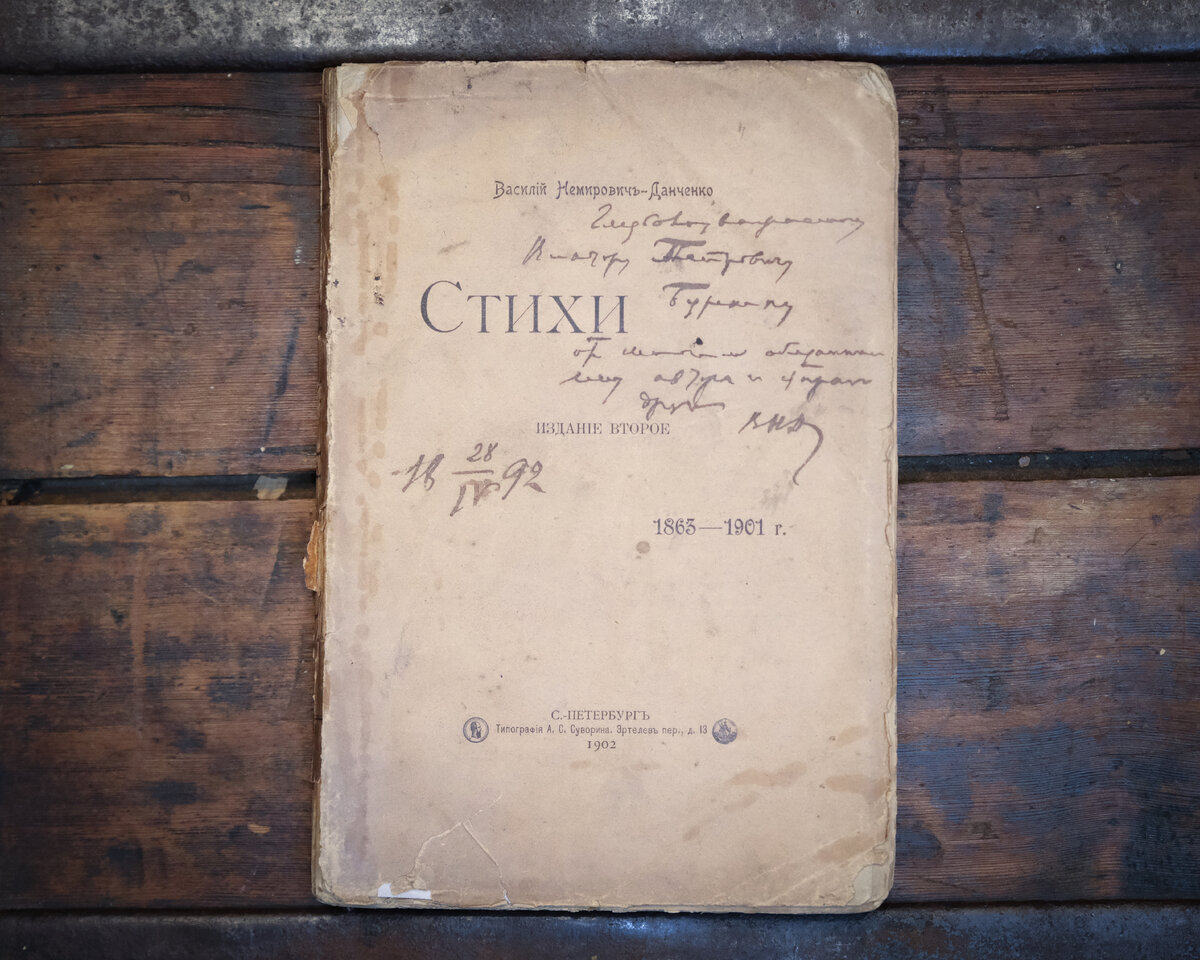 Василій Немировичъ-Данченко
Глубокоуважаемому
Виктору Петровичу
Стихи
Буренину
от
автора и
друга
ВНД
Изданіе второе
18 28/IV 92
1863—1901 г.
С.-Петербургъ
Типографія А. С. Суворина. Эртелевъ пер., д. 13
1902